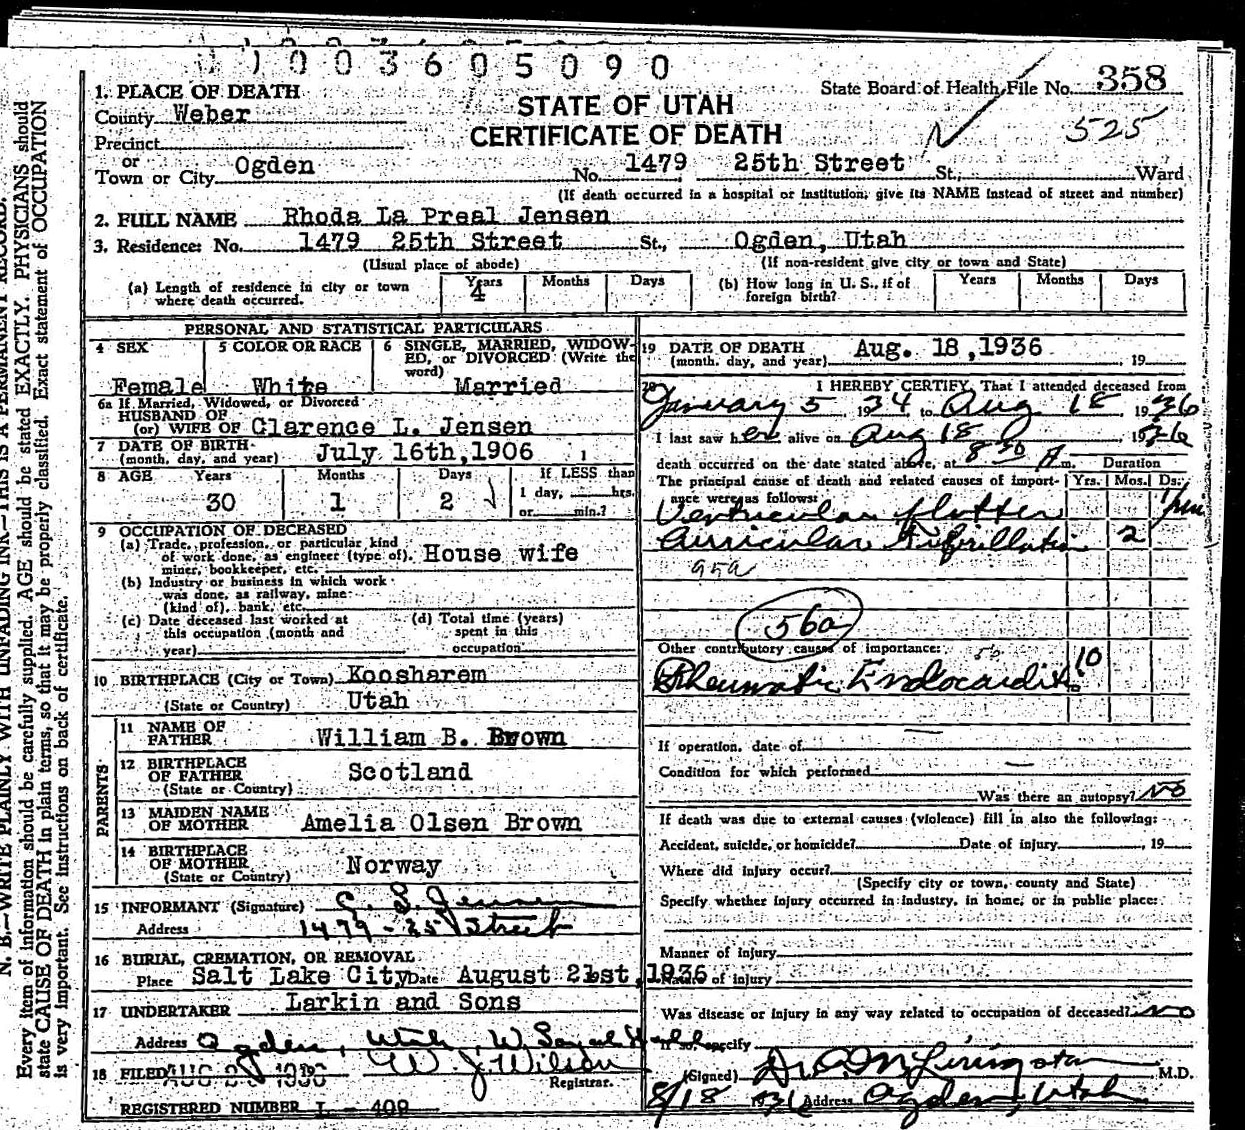 1003605090
1. PLACE OF DEATH
County Weber
Precinct
or
Town or City Ogden
STATE OF UTAH
CERTIFICATE OF DEATH
State Board of Health File No. 358
525
No. 1479 25th Street St., Ward
(If death occurred in a hospital or institution, give its NAME instead of street and number)
2. FULL NAME Rhoda La Preal Jensen
3. Residence: No. 1479 25th Street St., Ogden, Utah
(Usual place of abode) (If non-resident give city or town and State)
(a) Length of residence in city or town where death occurred. Years 4 Months Days
(b) How long in U. S., if of foreign birth? Years Months Days
PERSONAL AND STATISTICAL PARTICULARS
4 SEX Female
5 COLOR OR RACE White
6 SINGLE, MARRIED, WIDOW-
ED, or DIVORCED (Write the
word) Married
6a If Married, Widowed, or Divorced
HUSBAND OF
(or) WIFE OF Clarence L. Jensen
7 DATE OF BIRTH
(month, day, and year) July 16th, 1906
8 AGE Years 30 Months 1 Days 2
If LESS than
1 day, hrs.
or min.?
9 OCCUPATION OF DECEASED
(a) Trade, profession, or particular kind
of work done, as engineer (type of),
miner, bookkeeper, etc. House wife
(b) Industry or business in which work
was done, as railway, mine
(kind of), bank, etc.
(c) Date deceased last worked at
this occupation (month and
year)
(d) Total time (years)
spent in this
occupation
10 BIRTHPLACE (City or Town) Koosharem
(State or Country) Utah
PARENTS
11 NAME OF
FATHER William B. Brown
12 BIRTHPLACE
OF FATHER
(State or Country) Scotland
13 MAIDEN NAME
OF MOTHER Amelia Olsen Brown
14 BIRTHPLACE
OF MOTHER
(State or Country) Norway
15 INFORMANT (Signature) Jensen
Address 1479 - 25 Street
16 BURIAL, CREMATION, OR REMOVAL
Place Salt Lake City Date August 21st, 1936
17 UNDERTAKER Larkin and Sons
Address Ogden, Utah,
18 FILED AUG 1936 W. J. Wilson
Registrar.
REGISTERED NUMBER L - 409
19 DATE OF DEATH
(month, day, and year) Aug. 18, 1936 19
20 I HEREBY CERTIFY, That I attended deceased from
January 5 1934 to Aug 18 1936
I last saw her alive on Aug 18 1936
death occurred on the date stated above, at 8 30 A m.
The principal cause of death and related causes of import-
ance were as follows:
Duration
Yrs. Mos. Ds.
Ventricular flutter 1 min
Auricular Fibrillation 2
95a
56a
Other contributory causes of importance:
Rheumatic Endocarditis 10
If operation, date of
Condition for which performed
Was there an autopsy? No
If death was due to external causes (violence) fill in also the following:
Accident, suicide, or homicide? Date of injury , 19
Where did injury occur?
(Specify city or town, county and State)
Specify whether injury occurred in industry, in home, or in public place:
Manner of injury
Nature of injury
Was disease or injury in any way related to occupation of deceased? No
If so, specify
(Signed) Livingston M.D.
8/18 1936 Address Ogden, Utah
N. B.—WRITE PLAINLY WITH UNFADING INK—THIS IS A PERMANENT RECORD.
Every item of information should be carefully supplied. AGE should be stated EXACTLY. PHYSICIANS should
state CAUSE OF DEATH in plain terms, so that it may be properly classified. Exact statement of OCCUPATION
is very important. See instructions on back of certificate.